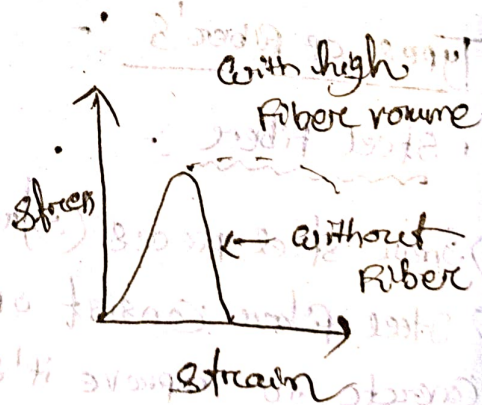 with high
Fiber volume
stress
without
Fiber
strain